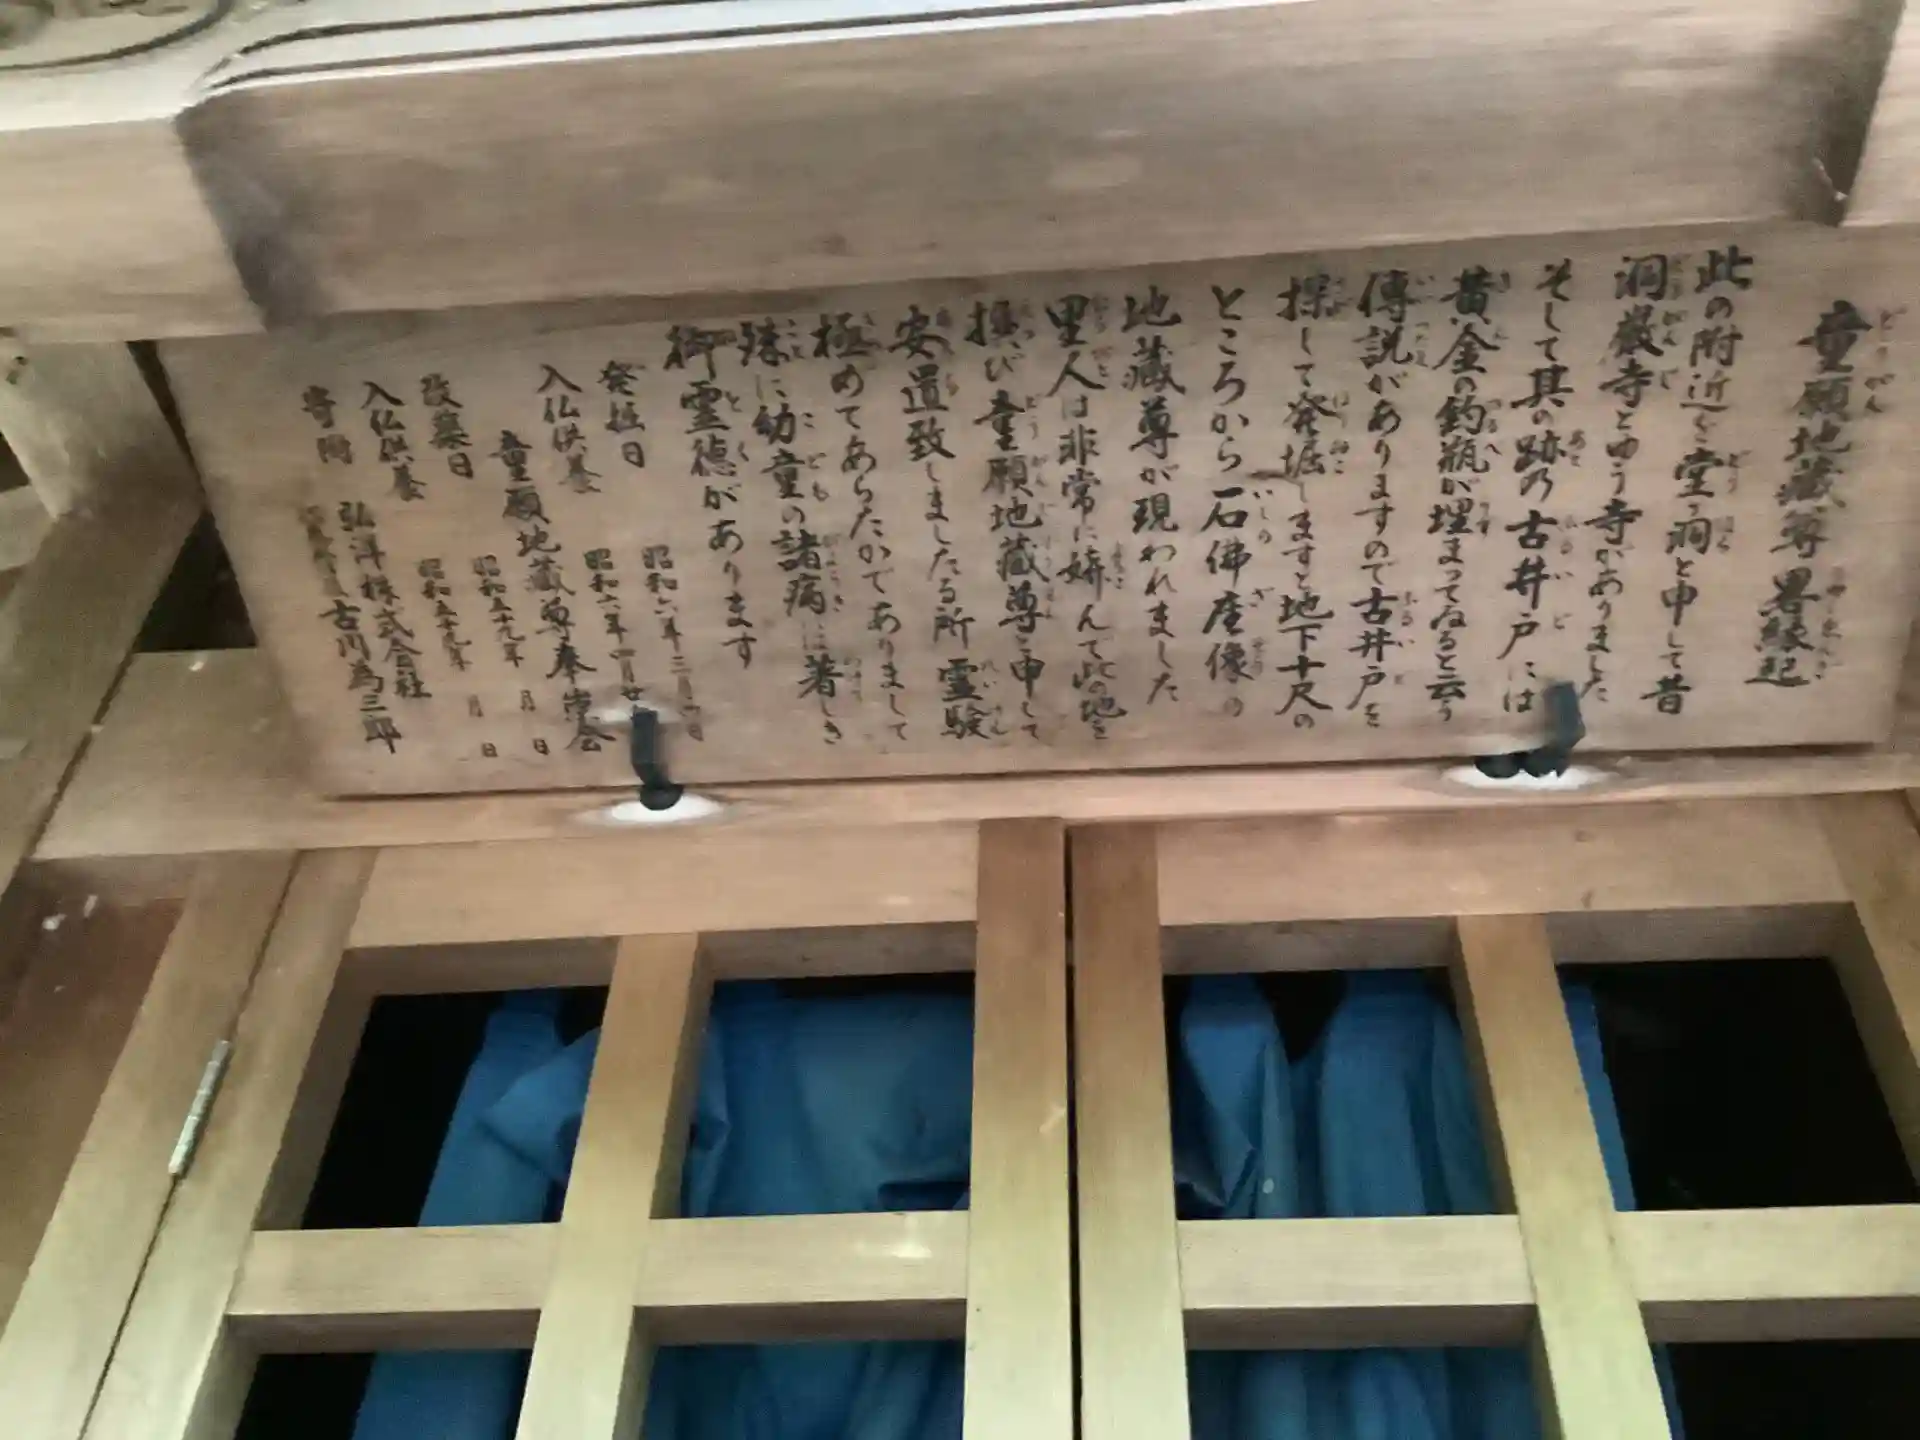 童願地蔵尊畧縁起
此の附近を堂洞と申して昔
洞巌寺とゆう寺がありました
そして其の跡の古井戸には
黄金の釣瓶が埋まってゐると云う
傳説がありますので古井戸を
探して発堀しますと地下十尺の
ところから石佛座像の
地蔵尊が現われました
里人は非常に喜んで此の地を
撰び童願地蔵尊と申して
安置致しましたる所霊験
極めてあらたかでありまして
殊に幼童の諸病に著しき
御霊徳があります
発掘日 昭和六年三月 日
入仏供養 昭和六年四月廿
童願地蔵尊奉賛会
改築日 昭和五十九年 月 日
入仏供養 昭和五十九年 月 日
寄附 弘洋株式会社
古川為三郎